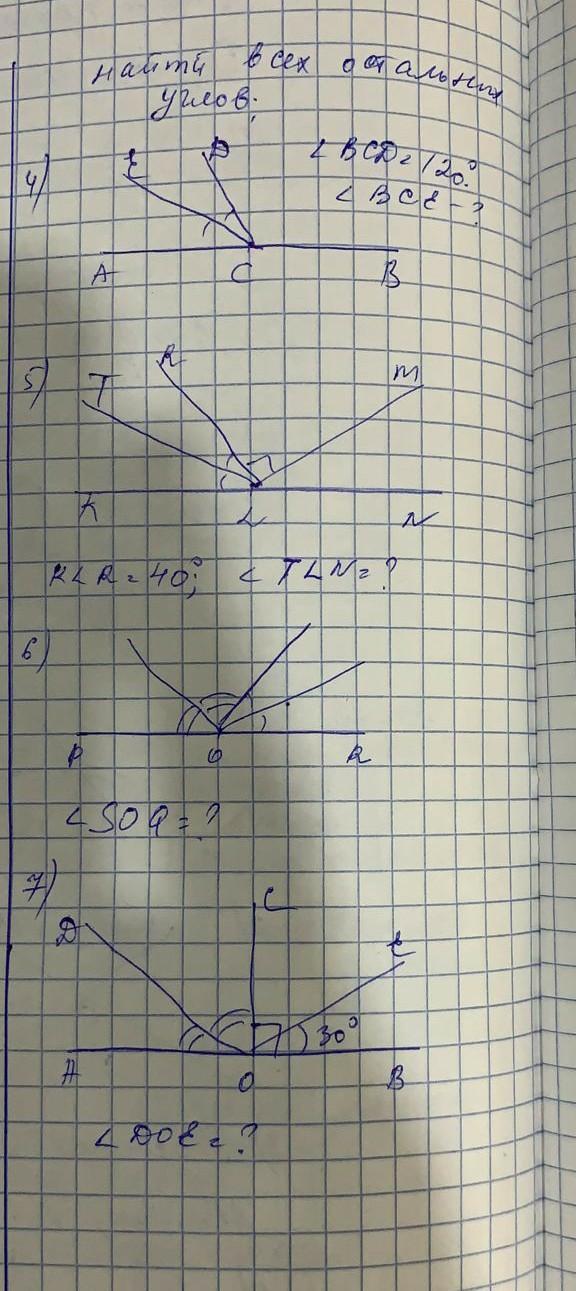 найти всех остальных
углов;
4)
E D
∠BCD = 120°.
∠BCE - ?
A C B
5)
T R M
K L N
K∠R = 40°; ∠T∠N = ?
6)
P O R
∠SOQ = ?
7)
D C E
30°
A O B
∠DOE = ?